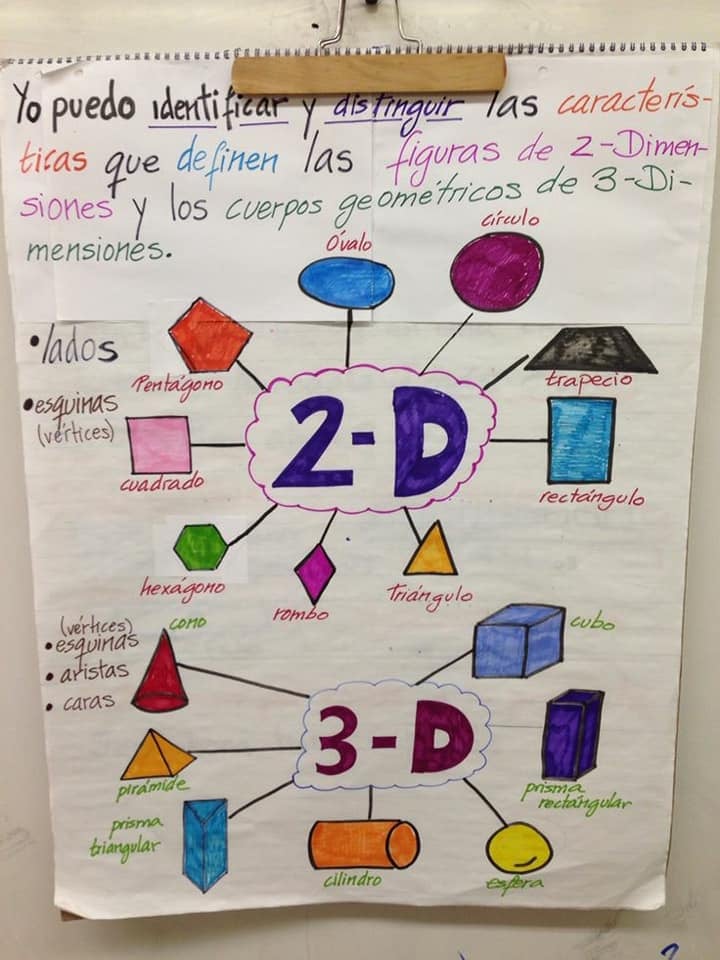 Yo puedo identificar y distinguir las caracterís-
ticas que definen las figuras de 2-Dimen-
siones y los cuerpos geométricos de 3-Di-
mensiones.
Óvalo
círculo
• lados
Pentágono
trapecio
• esquinas
(vértices)
2-D
cuadrado
rectángulo
hexágono
rombo
Triángulo
(vértices)
• esquinas
• aristas
• caras
cono
cubo
3-D
pirámide
prisma
rectangular
prisma
triangular
cilindro
esfera